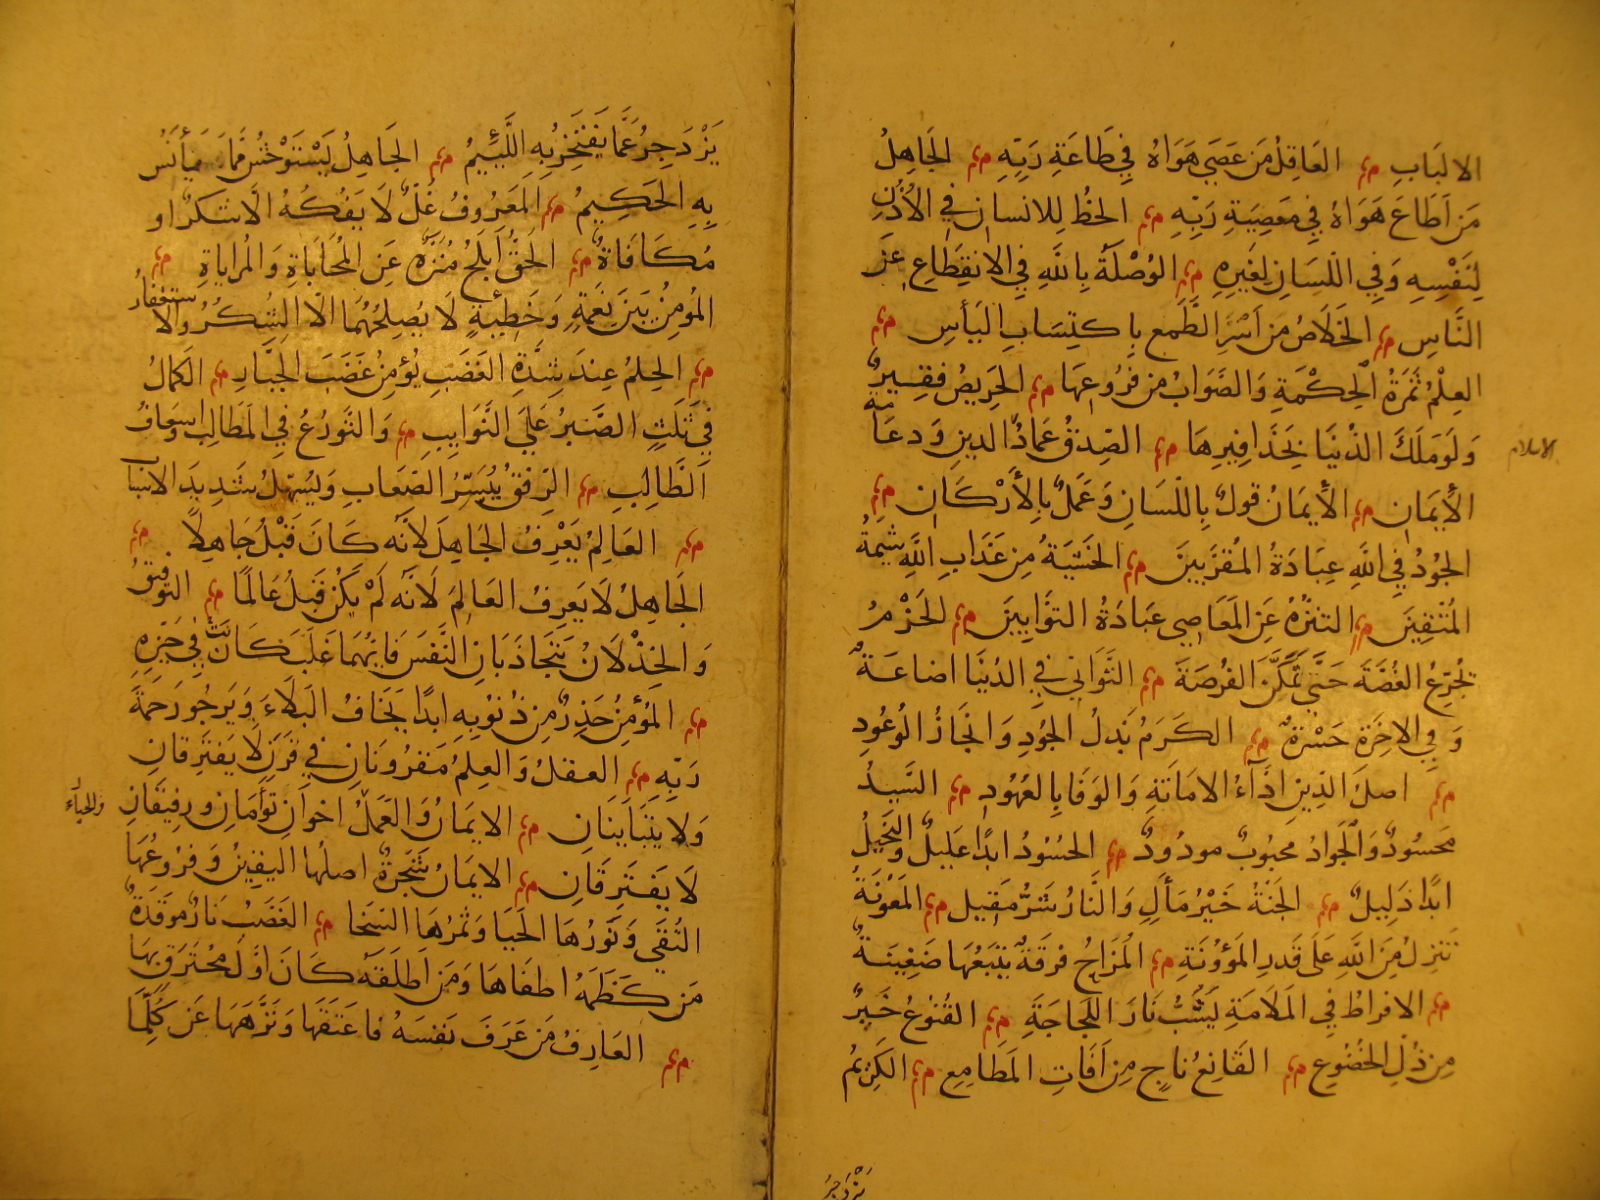 الالبَابِ م العَاقِلُ مَن عَصَى هَوَاهُ فِي طَاعَةِ رَبِّهِ م الجَاهِلُ
مَن اَطَاعَ هَوَاهُ فِي مَعصِيَةِ رَبِّهِ م الحظُ لِلانسانِ فِي الأُذُنِ
لِنَفْسِهِ وَفِي اللّسَانِ لِغَيرِهِ م الوُصْلَةُ بِاللّهِ فِي الانقِطَاعِ عَن
النَّاسِ م الخَلَاصُ مِن اَسْرِ الطَّمَعِ بِاكتِسَابِ اليَأسِ م
العِلْمُ ثَمَرَةُ الحِكْمَةِ وَالصَّوَابُ مِن فُرُوعِهَا م الحَرِيصُ فَقِيرٌ
وَلَومَلَكَ الدُنيَا بِحَذَافِيرِهَا م الصِّدقُ عِمَادُ الدينِ وَدعَامَة
الاسلام
الأيمَانِ م الأيمَانُ قولٌ بِاللّسَانِ وَعَمَلٌ بِالأَرْكَانِ م
الجُودُ فِي اللَّهِ عِبَادَةُ المُقَرَّبِينَ م الخَشيَةُ مِن عَذَابِ اللَّهِ شِيمَةُ
المُتَّقِينَ م التنَزُّهُ عَنِ المَعَاصِى عِبَادَةُ التوَّابِينَ م الحَزْمُ
تجُرّعُ الغُصَّةِ حَتّى تَمَكّنَ الفُرصَةَ م التَّوَانِي فِي الدُنيَا اضاعَةٌ
وَفِي الاخِرَةِ حَسْرَةٌ م الكَرَمُ بَذلُ الجُودِ وَانجَازُ الوُعُودِ
م اصلُ الدِّينِ ادَاءُ الامَانَةِ وَالوَفَا بِالعُهُودِ م السَّيدُ
مَحسُودٌ وَالجَوَادُ مَحبُوبٌ مودُودٌ م الحسُودُ ابدًا عَلِيلٌ والبَخِيلُ
ابدًا ذَلِيلٌ م الجَنَةُ خَيْرُ مَألٍ وَالنَّارُ شَرُّ مَقِيلٍ م المَعُونَةُ
تَنزِلُ مِنَ اللَّهِ عَلَى قَدرِ المَؤُونَةِ م المُزَاحُ فرقَةٌ يَتبَعُهَا ضَغِينَةٌ
م الافراطُ فِي المَلَامَةِ يَشُبُّ نَارَ اللَّجَاجَةِ م القُنُوعُ خَيرٌ
مِن ذُلّ الخُضُوعِ م القَانِعُ نَاجٍ مِن اَفَاتِ المَطَامِعِ م الكَرِيمُ
يَزْدَجِرُ
يَزْدَجِرُ عَمَّا يَفتَخِرُ بِهِ اللَّئِيمُ م الجَاهِلُ يَسْتَوحِشُ مِمَّا يَأنَسُ
بِهِ الحَكِيمُ م المَعرُوفُ غُلٌّ لَا يَفُكُهُ الَّا شكرٌ او
مُكَافَاةٌ م الحَقُّ اَبلَجُ مُنَزَّهٌ عَنِ المُحَابَاةِ وَالمُرايَاةِ م
المُومِنُ بَينَ نِعمَةٍ وَخَطِيئَةٍ لَا يُصلِحُهُمَا الَّا الشُكرُ وَالاستغفارُ
م الحِلمُ عِندَ شِدَّةِ الغَضَبِ يُؤمِنُ غَضَبَ الجَبّارِ م الكَمالُ
فِي ثَلَثٍ الصَّبرُ عَلَى النَّوَايِبِ م وَالتَّوَرُعُ فِي المَطَالِبِ واسعَافُ
الطَّالِبِ م الرّفقُ يُيَسّرُ الصِّعَابِ وَيُسَهّلُ شَدِيدَ الاسبَاب
م العَالِمُ يَعْرِفُ الجَاهِلَ لَانَّهُ كَانَ قَبْلُ جَاهِلاً م
الجَاهِلُ لَا يَعرِفُ العَالِمَ لَانَّهُ لَمْ يَكُنْ قَبلُ عَالِمًا م التَوفِيقُ
وَالخِذْلَانُ يَتَجَاذَبَانِ النَّفسَ فَايُّهُمَا غَلَبَ كَانَت فِي حَيّزِهِ
م المُؤمِنُ حَذِرٌ مِن ذُنُوبِهِ ابدًا يَخَافُ البَلَاءَ وَيَرجُو رَحمَةَ
رَبّهِ م العَقلُ وَالعِلمُ مَقرُونَانِ فِي قَرَنٍ لَا يَفتَرِقَانِ
وَلا يَتَبَايَنَانِ م الايمَانُ وَالعَمَلُ اخوَانِ تَوأمَانِ ورفِيقَانِ
والحياء
لَا يَفتَرِقَانِ م الايمَانُ شَجَرَةٌ اصلُهَا اليَقِينُ وَفرُوعُهَا
التُّقَى وَنَورُهَا الحَيَا وَثَمَرُهَا السَخَا م الغَضَبُ نَارٌ موقَدَةٌ
مَن كَظَمَهُ اطفَاهَا وَمَن اَطلَقَهُ كَانَ اوَّلَ مُحتَرَقٍ بِهَا
م العَارِفُ مَن عَرَفَ نَفسَهُ فَاعتَقَهَا وَنَزَّهَهَا عَن كُلِّمَا